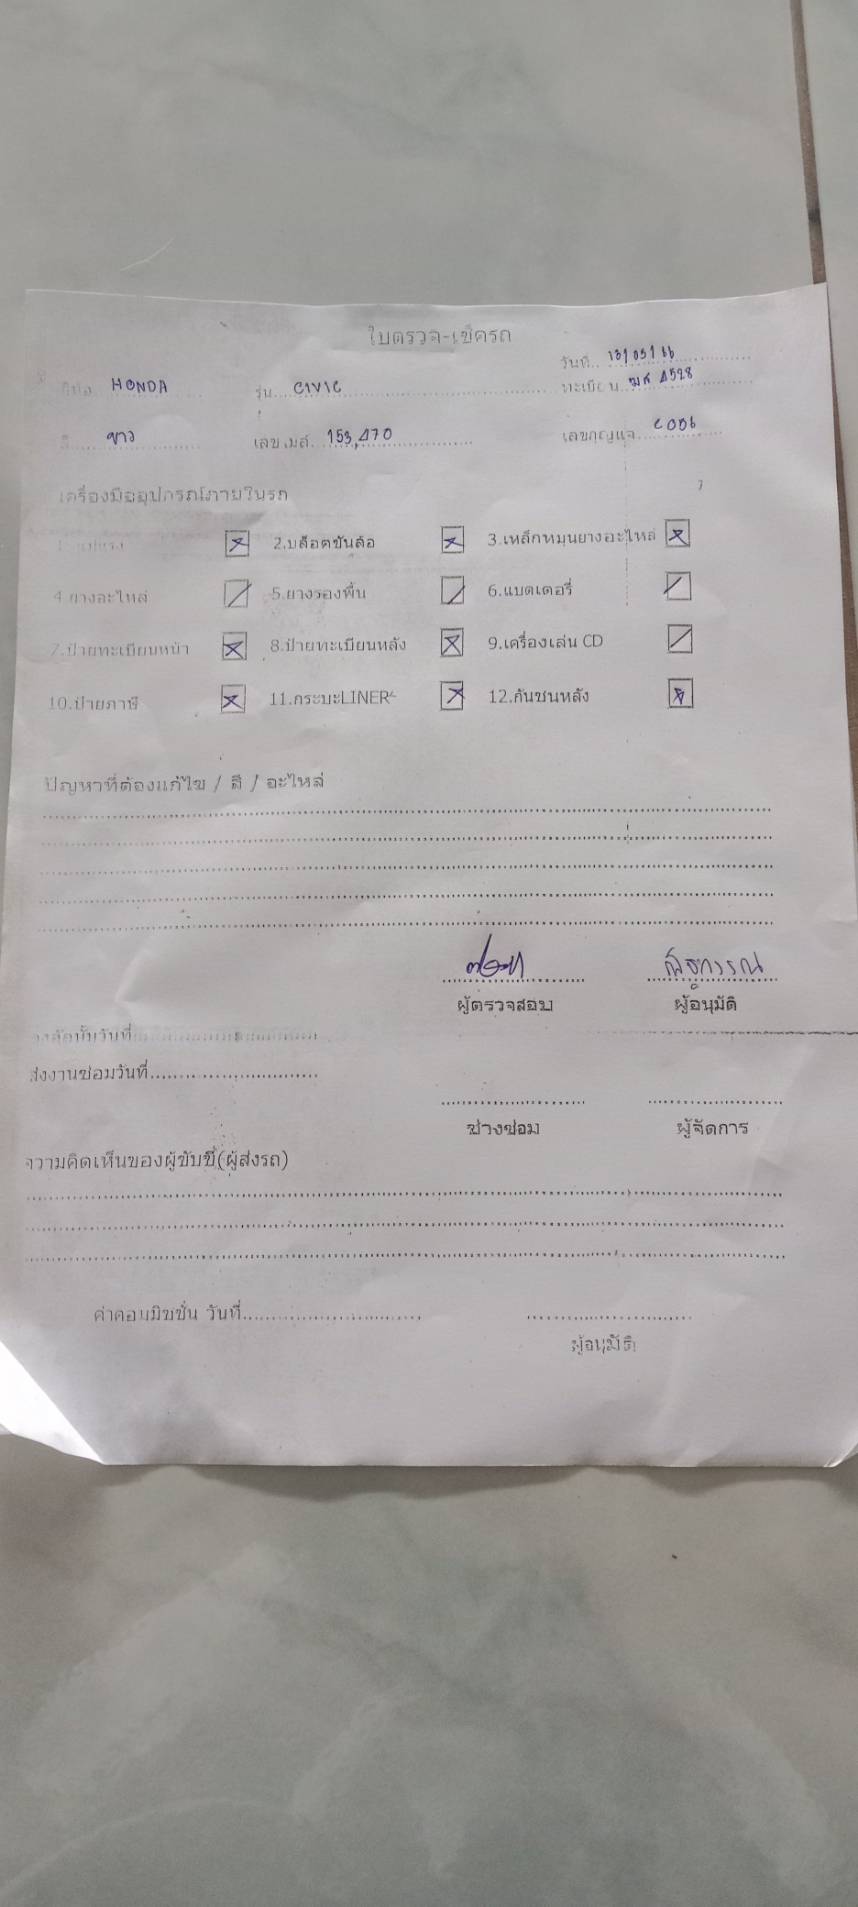 ใบตรวจ-เช็ครถ
วันที่ 13/05/66
ยี่ห้อ HONDA รุ่น CIVIC ทะเบียน 4528
สี ขาว เลขไมล์ 153,470 เลขกุญแจ C006
เครื่องมืออุปกรณ์ภายในรถ
1. 2.บล็อตขันล้อ 3.เหล็กหมุนยางอะไหล่
4.ยางอะไหล่ 5.ยางรองพื้น 6.แบตเตอรี่
7.ป้ายทะเบียนหน้า 8.ป้ายทะเบียนหลัง 9.เครื่องเล่น CD
10.ป้ายภาษี 11.กระบะLINER 12.กันชนหลัง
ปัญหาที่ต้องแก้ไข / สี / อะไหล่
ผู้ตรวจสอบ ผู้อนุมัติ
ส่งงานซ่อมวันที่
ช่างซ่อม ผู้จัดการ
ความคิดเห็นของผู้ขับขี่(ผู้ส่งรถ)
ค่าคอมมิชชั่น วันที่
ผู้อนุมัติ